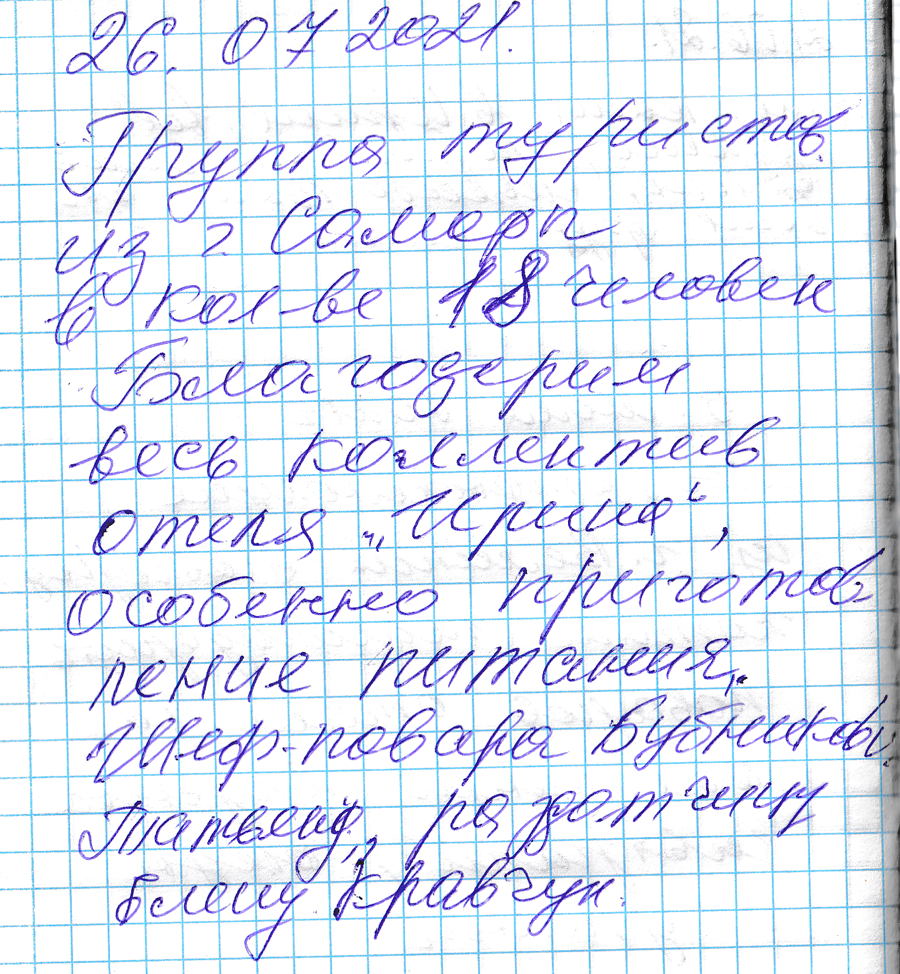 26. 07 2021.
Группа туристов
из г. Самары
в кол-ве 18 человек
Благодарим
весь коллектив
отеля „Ирина“,
особенно приготов
ление питания.
Шеф-повара Бубникову
Татьяну, раздатчицу
Елену Кравчук.